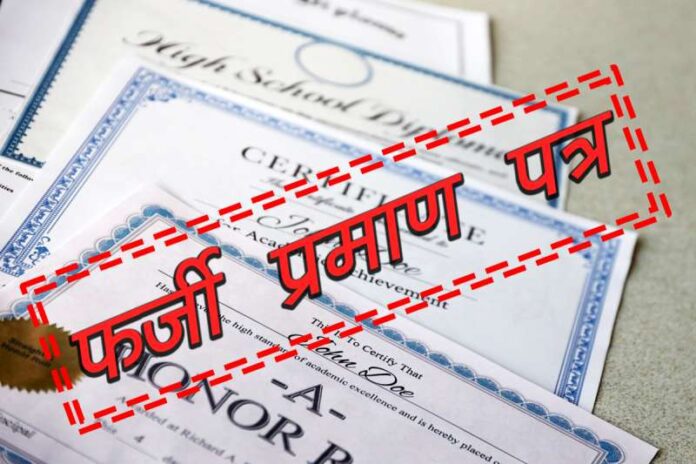 High School Diploma
CERTIFICATE
John Doe
for Academic Achievement
फर्जी प्रमाण पत्र
This Is To Certify That
John Doe
the high standards of academic excellence and is hereby placed
-A-
HONOR R
Awarded at Richard A
4